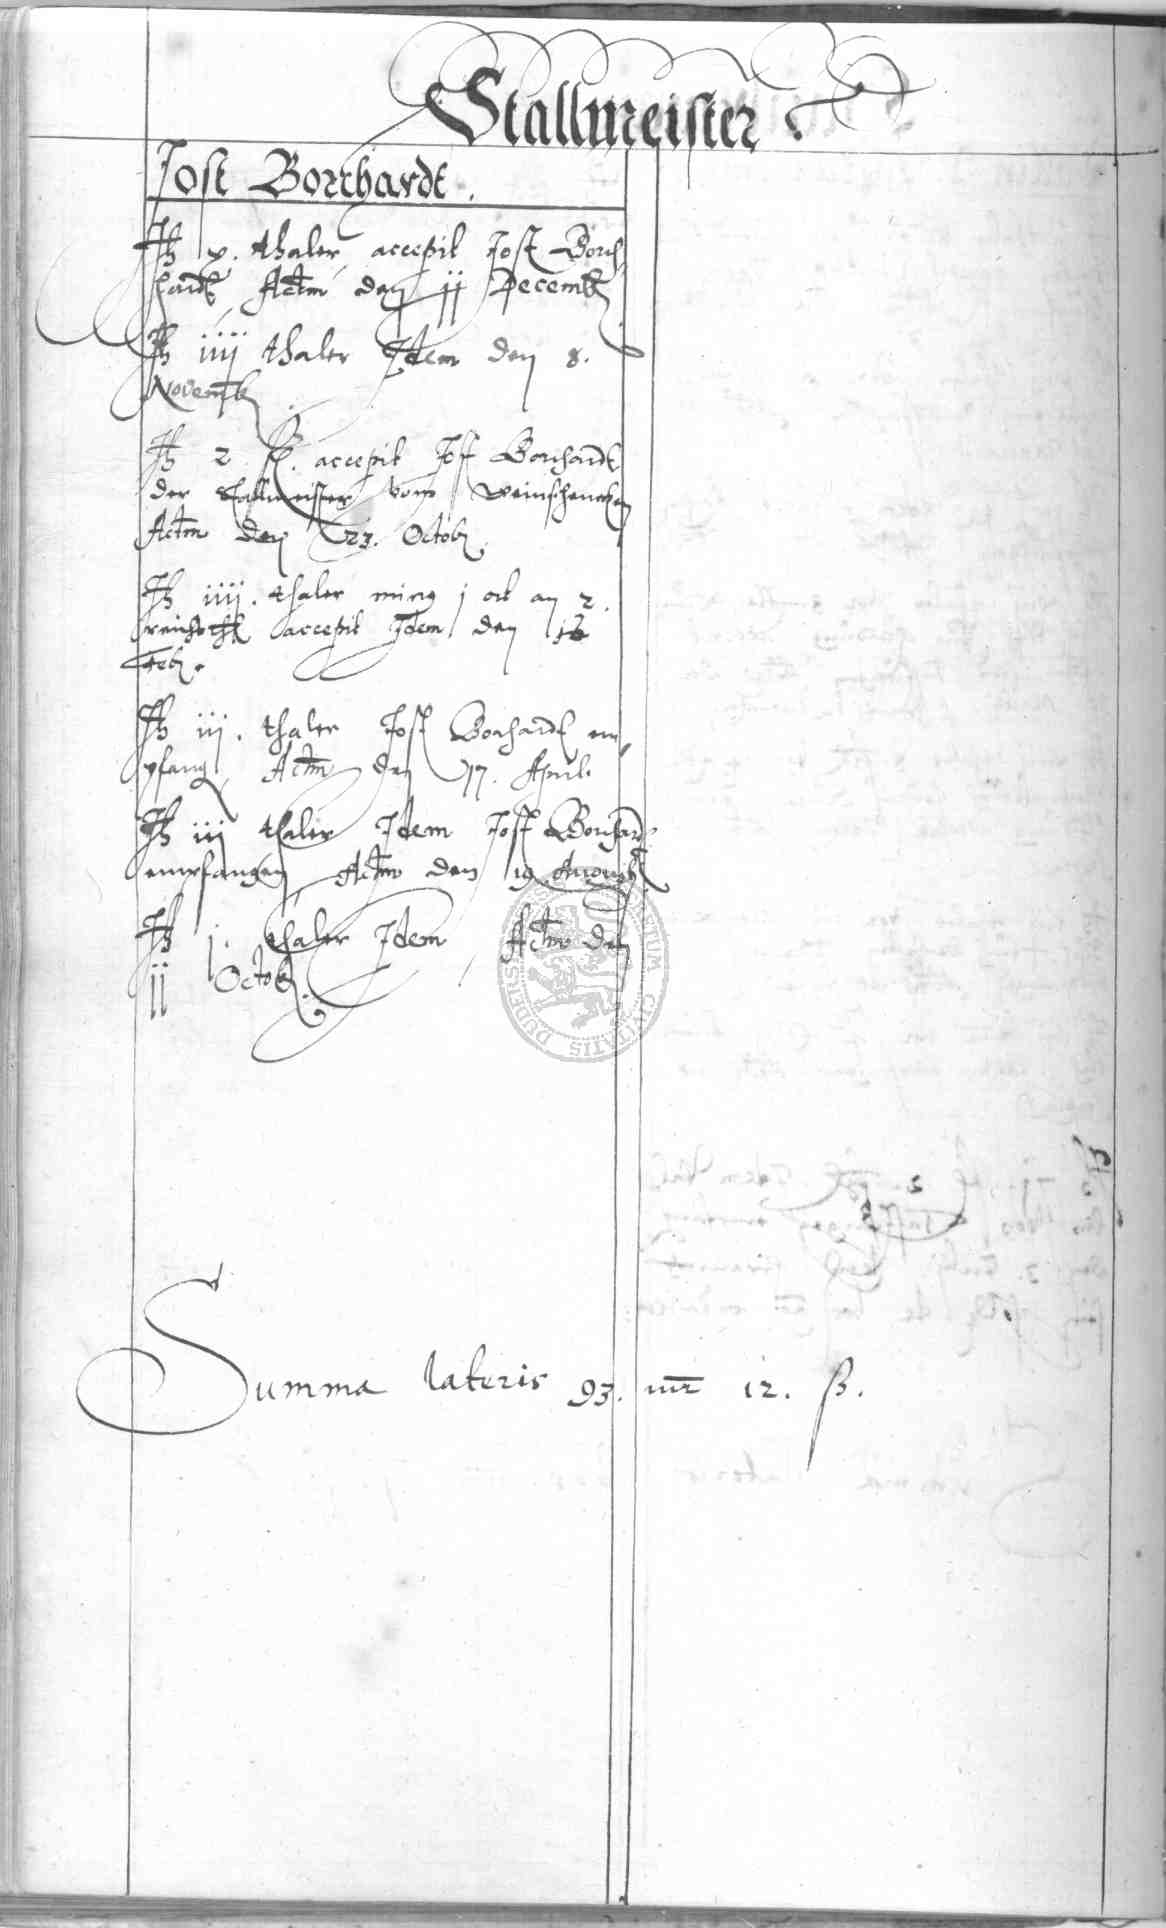 Stallmeister.
Jost Borchardt.
It v. thaler accepit Jost Borch
hardt Actm den jj Decemb
It iiij thaler Idem den 8.
Novemb
It 2 fl. accepit Jost Borchardt
der Stallmeister vom Weinschencken
Actm den 23. Octob
It iiij. thaler ming j ort an 2.
accepit Idem den
Feb.
It iij. thaler Jost Borchardt em
pfang Actm den 17. April.
It iij thaler Idem Jost Borchardt
empfangen Actm den 19 August
It j thaler Idem Actm den
jj Octob.
Summa lateris 93. mr 12. ß.
DUDERS CIVITATIS